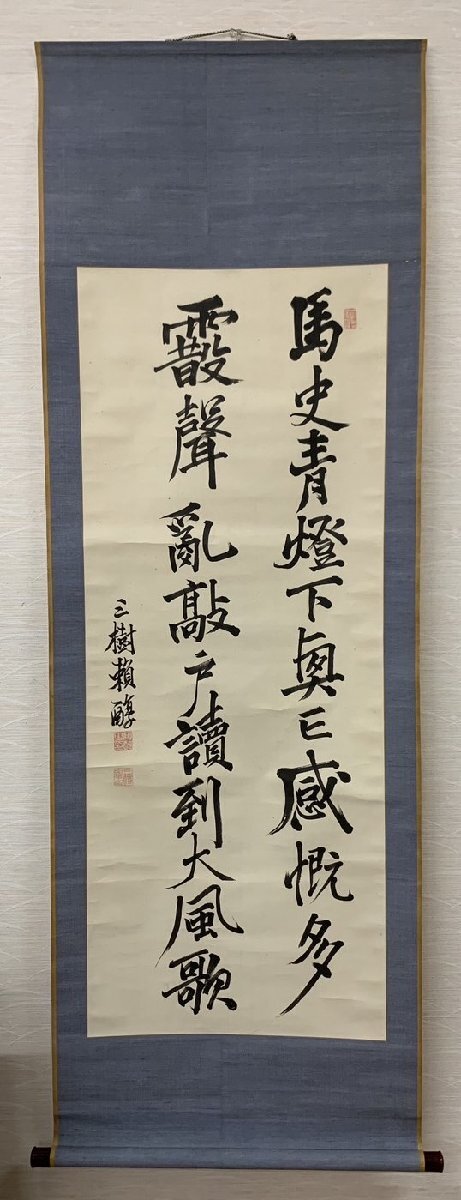 馬史青燈下興亡感慨多
霰聲亂敲戶讀到大風歌
三樹賴醇